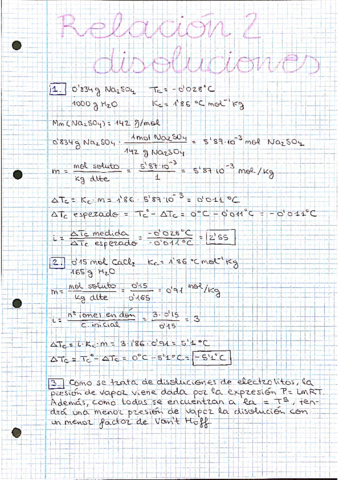 Relación 2
disoluciones
1. 0'834 g Na₂SO₄ Tc = -0'028°C
1000 g H₂O Kc = 1'86 °C mol⁻¹ kg
Mm (Na₂SO₄) = 142 g/mol
0'834 g Na₂SO₄ · 1 mol Na₂SO₄ / 142 g Na₂SO₄ = 5'87·10⁻³ mol Na₂SO₄
m = mol soluto / kg dlte = 5'87·10⁻³ / 1 = 5'87·10⁻³ mol/kg
ΔTc = Kc · m = 1'86 · 5'87·10⁻³ = 0'011 °C
ΔTc esperado = Tc* - ΔTc = 0°C - 0'011°C = -0'011°C
i = ΔTc medida / ΔTc esperado = -0'028°C / -0'011°C = 2'55
2. 0'15 mol CaCl₂ Kc = 1'86 °C mol⁻¹ kg
165 g H₂O
m = mol soluto / kg dlte = 0'15 / 0'165 = 0'91 mol/kg
i = nº iones en dón / c. inicial = 3·0'15 / 0'15 = 3
ΔTc = i·Kc·m = 3·1'86·0'91 = 5'1°C
ΔTc = Tc* - ΔTc = 0°C - 5'1°C = -5'1°C
3. Como se trata de disoluciones de electrolitos, la
presión de vapor viene dada por la expresión P = imRT.
Además, como todas se encuentran a la = Tª, ten-
drá una menor presión de vapor la disolución con
un menor factor de Van't Hoff.